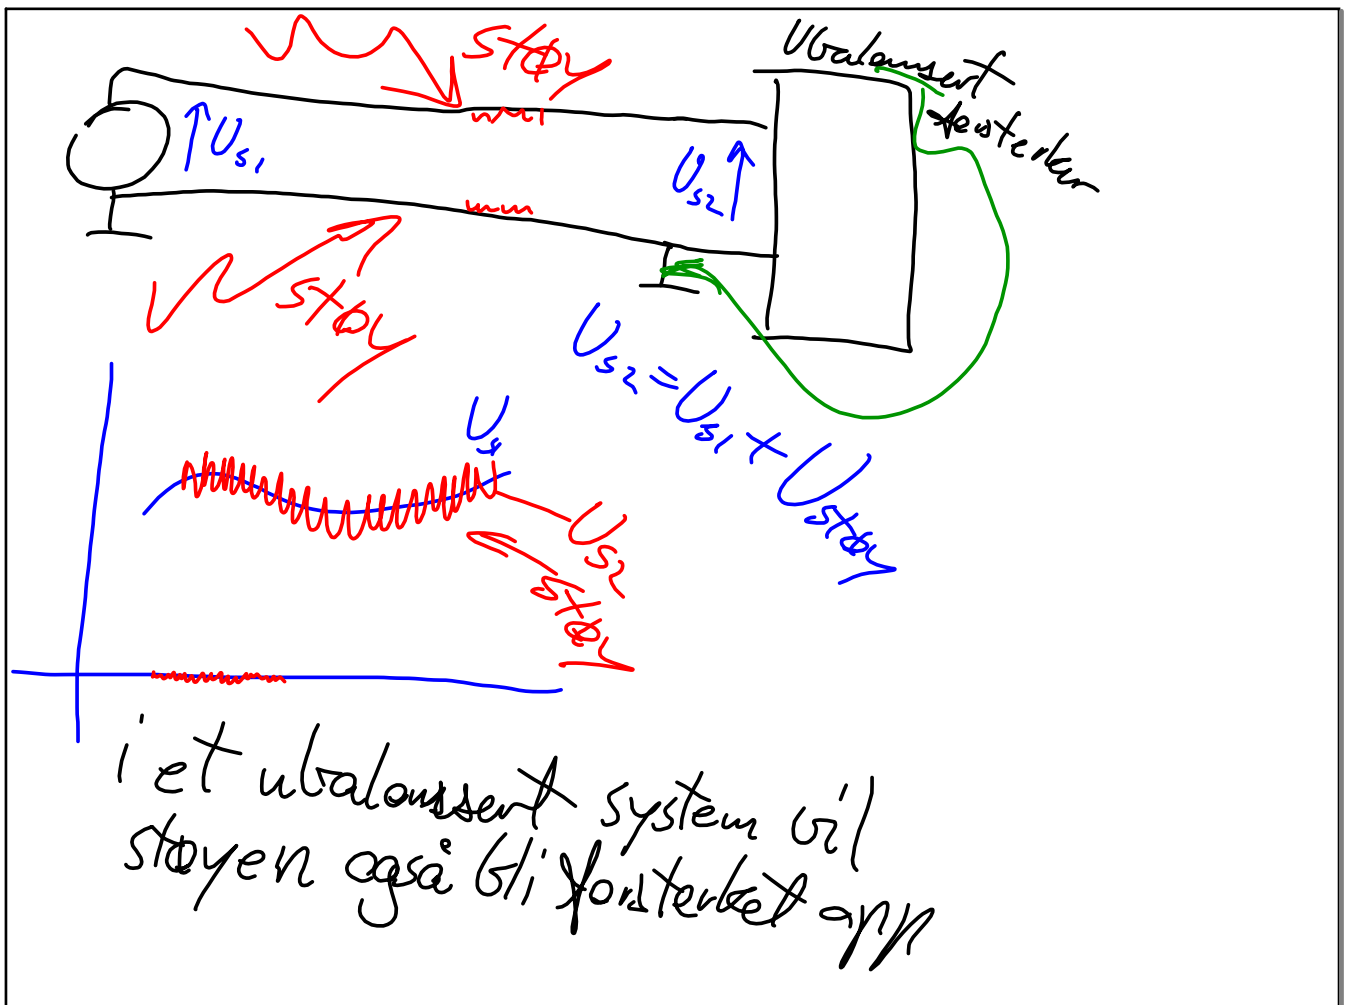 støy
Ubalansert
forsterker
Us1
Us2
støy
Us2 = Us1 + Ustøy
Us1
Us2
støy
i et ubalansert system vil
støyen også bli forsterket opp